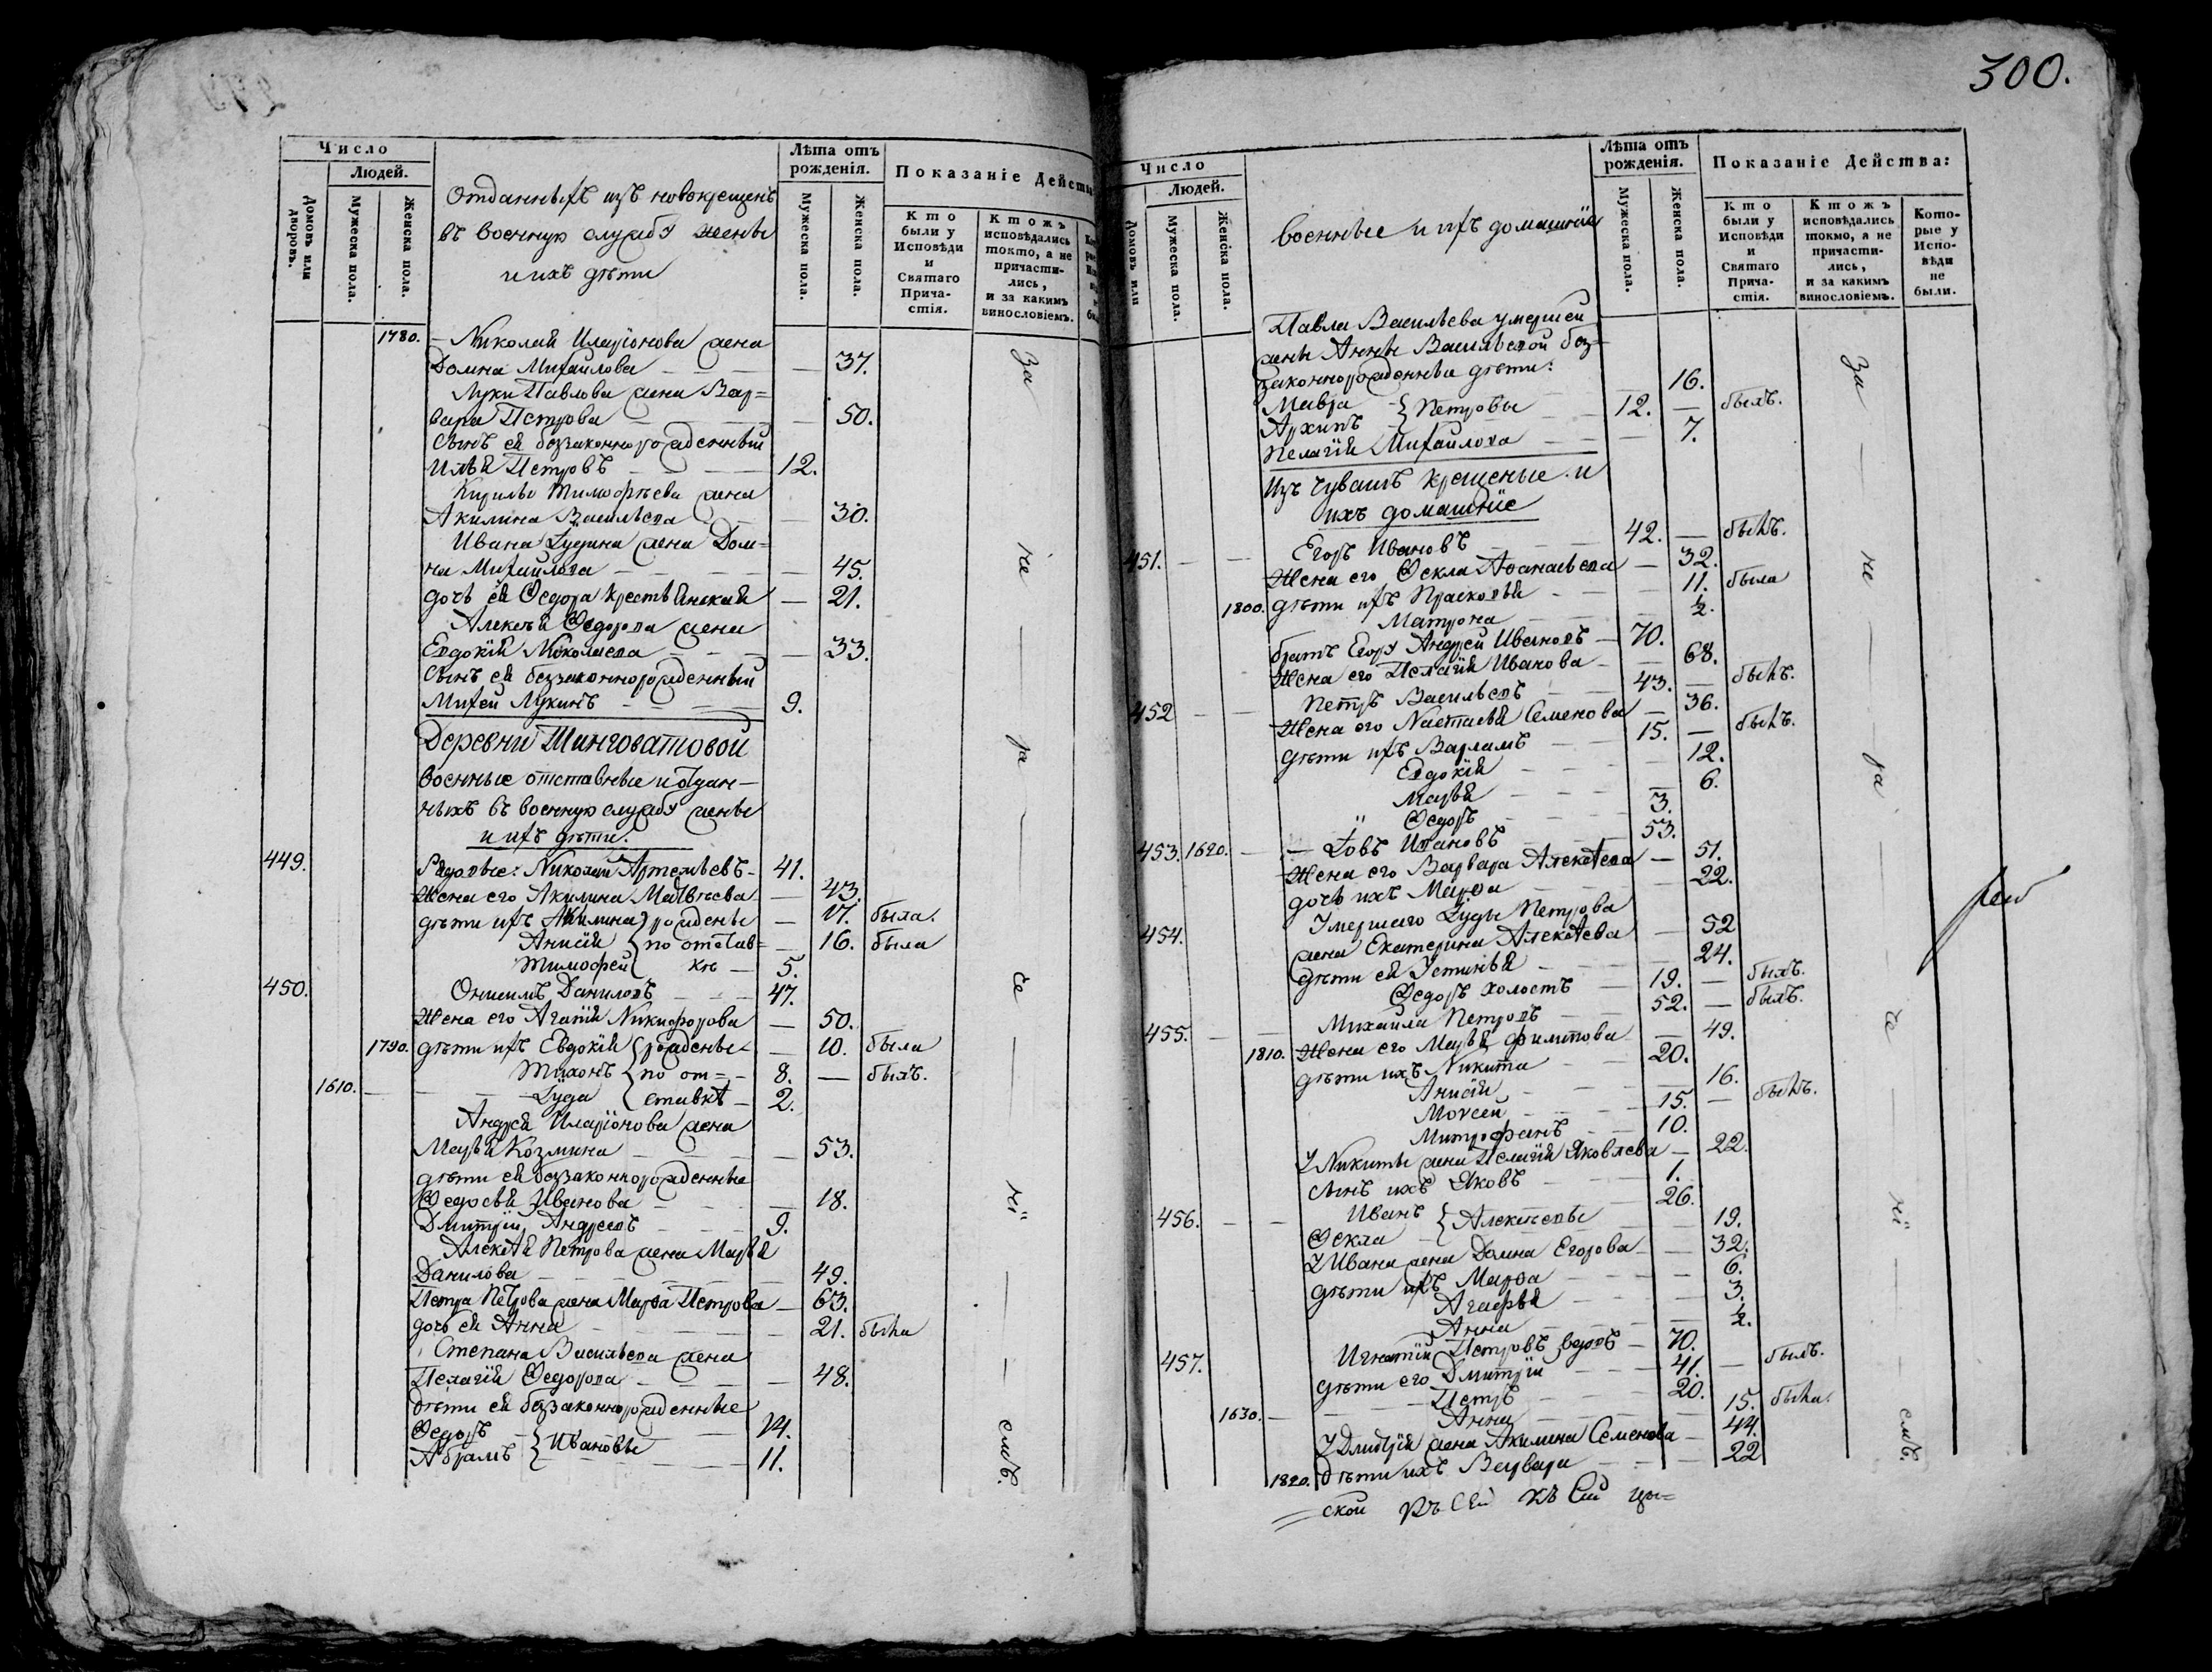 300.
Число
Людей.
Домовъ или дворовъ.
Мужеска пола.
Женска пола.
Отданныхъ изъ новокрещенъ
въ военную службу жены
и ихъ дѣти
Лѣта отъ рожденія.
Мужеска пола.
Женска пола.
Показаніе Действ
Кто были у Исповѣди и Святаго Причастія.
Ктожъ исповѣдались токто, а не причастились, и за какимъ винословіемъ.
1780. – Николай Иларіонова жена
Домна Михайлова — 37.
Луки Павлова жена Вар=
вара Петрова — 50.
Сынъ ея беззаконнорожденный
Илья Петровъ — 12.
Кирилы Тимофѣева жена
Акилина Васильева — 30.
Ивана Іудина жена Дом=
на Михайлова — 45.
дочь ея Ѳедора — 21.
Алексѣя Ѳедорова жена
Евдокія Николаева — 33.
Сынъ ея беззаконнорожденный
Михей Лукинъ — 9.
Деревни Шинговатовой
военные отставные и отдан-
ныхъ въ военную службу жены
и ихъ дѣти.
449. Рядовые: Николай Артемьевъ - 41.
Жена его Акилина Матвѣева — 43.
дѣти ихъ Акилина } рождены — 17. была.
Анисія { по отстав= — 16. была
Тимофей { кѣ — 5.
450. Онисимъ Даниловъ — 47.
Жена его Агафія Никифорова — 50.
1790. дѣти ихъ Евдокія { рождены — 10. была
Тихонъ { по от= — 8. — былъ.
1610. — Іуда { ставкѣ — 2.
Андрея Иларіонова жена
Марья Козмина — 53.
дѣти ея беззаконнорожденные
Ѳедосья Иванова — 18.
Дмитрій Андреевъ — 9.
Алексѣя Петрова жена Марья
Данилова — 49.
Петра Петрова жена Марѳа Петрова — 63.
дочь ея Анна — 21. была
Степана Васильева жена
Пелагія Ѳедорова — 48.
дѣти ея беззаконнорожденные
Ѳедоръ { Ивановы — 14.
Абрамъ — 11.
за не ра че ні емъ.
Число
Людей.
Домовъ или
Мужеска пола.
Женска пола.
военные и ихъ домашніе
Лѣта отъ рожденія.
Мужеска пола.
Женска пола.
Показаніе Действа:
Кто были у Исповѣди и Святаго Причастія.
Ктожъ исповѣдались токмо, а не причастились, и за какимъ винословіемъ.
Которые у Исповѣди не были.
Павла Васильева умершей
жены Анны Васильевой без=
законнорожденные дѣти:
Мавра { Петровы — 16.
Архипъ — 12. — былъ.
Пелагія Михайлова — 7.
Изъ Чувашъ крещеные и
ихъ домашніе
451. Егоръ Ивановъ — 42. — былъ.
Жена его Ѳекла Аѳанасьева — 32.
1800. дѣти ихъ Прасковья — 11. была
Матрона — ½.
братъ Егору Андрей Ивановъ — 70.
Жена его Пелагія Иванова — 68.
452 Петръ Васильевъ — 43. — былъ.
Жена его Настасья Семенова — 36.
дѣти ихъ Варламъ — 15. — былъ.
Евдокія — 12.
Марья — 6.
Ѳедоръ — 3.
453. 1620. — Іовъ Ивановъ — 53.
Жена его Варвара Алексѣева — 51.
дочь ихъ Марѳа — 22.
454. Умершаго Іуды Петрова
жена Екатерина Алексѣева — 52
дѣти ея Устинья — 24.
Ѳедоръ холостъ — 19. — былъ.
455. Михайла Петровъ — 52. — былъ.
1810. Жена его Марья Филипова — 49.
дѣти ихъ Никита — 20.
Анисія — 16.
Мокей — 15. — былъ.
Митрофанъ — 10.
У Никиты жена Пелагія Яковлева — 22.
сынъ ихъ Яковъ — 1.
456. Иванъ { Алексѣевы — 26.
Ѳекла — 19.
У Ивана жена Домна Егорова — 32.
дѣти ихъ Марѳа — 6.
Агафья — 3.
Анна — ½.
457. Игнатій Петровъ вдовъ — 70.
дѣти его Дмитрій — 41. — былъ.
1630. — Петръ — 20.
Анна — 15. была.
У Дмитрія жена Акилина Семенова — 44.
1820. дѣти ихъ Варвара — 22
за не ра че ні емъ.